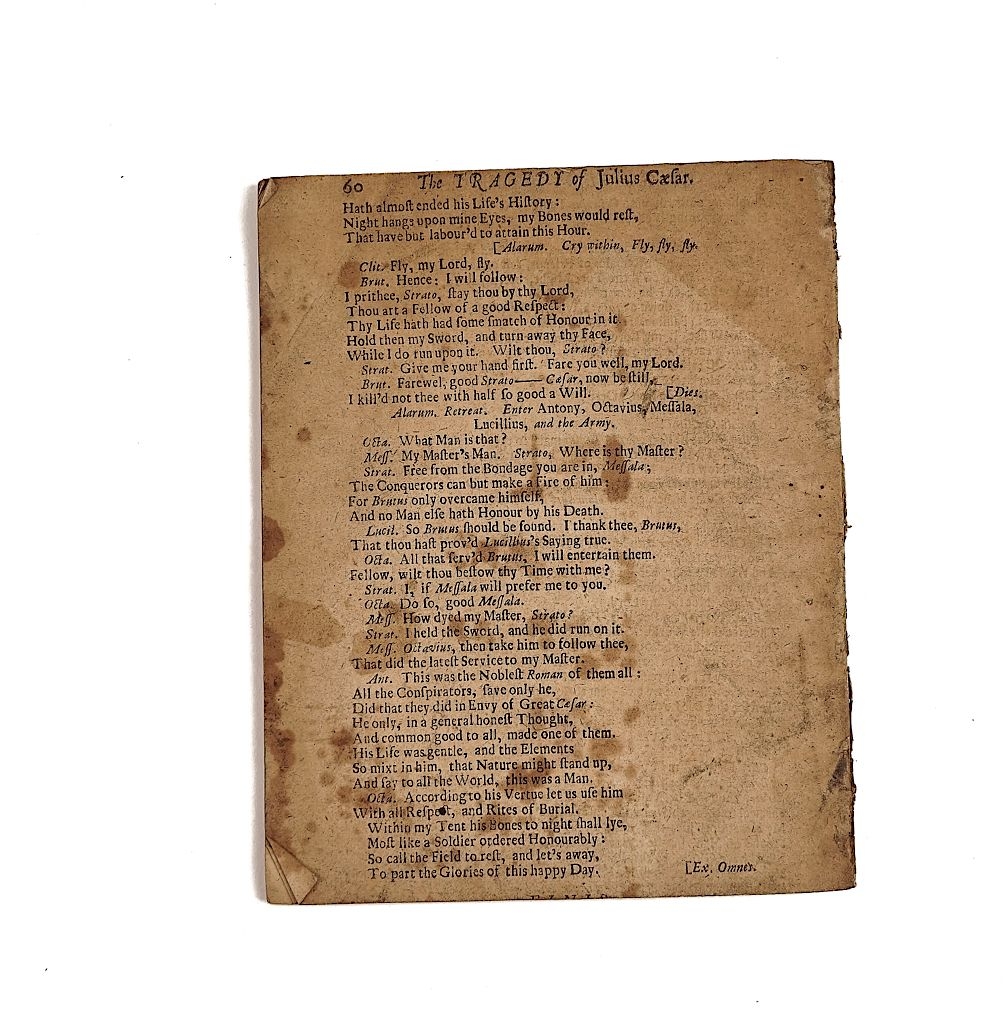 60 The TRAGEDY of Julius Cæſar.
Hath almoſt ended his Life's Hiſtory :
Night hangs upon mine Eyes, my Bones would reſt,
That have but labour'd to attain this Hour.
[Alarum. Cry within, Fly, fly, fly.
Clit. Fly, my Lord, fly.
Brut. Hence: I will follow :
I prithee, Strato, ſtay thou by thy Lord,
Thou art a Fellow of a good Reſpect :
Thy Life hath had ſome ſmatch of Honour in it.
Hold then my Sword, and turn away thy Face,
While I do run upon it. Wilt thou, Strato ?
Strat. Give me your hand firſt. Fare you well, my Lord.
Brut. Farewel, good Strato—— Cæſar, now be ſtill,
I kill'd not thee with half ſo good a Will. [Dies.
Alarum. Retreat. Enter Antony, Octavius, Meſſala,
Lucillius, and the Army.
Octa. What Man is that ?
Meſſ. My Maſter's Man. Strato, Where is thy Maſter ?
Strat. Free from the Bondage you are in, Meſſala ;
The Conquerors can but make a Fire of him :
For Brutus only overcame himſelf,
And no Man elſe hath Honour by his Death.
Lucil. So Brutus ſhould be found. I thank thee, Brutus,
That thou haſt prov'd Lucillius's Saying true.
Octa. All that ſerv'd Brutus, I will entertain them.
Fellow, wilt thou beſtow thy Time with me ?
Strat. I, if Meſſala will prefer me to you.
Octa. Do ſo, good Meſſala.
Meſſ. How dyed my Maſter, Strato ?
Strat. I held the Sword, and he did run on it.
Meſſ. Octavius, then take him to follow thee,
That did the lateſt Service to my Maſter.
Ant. This was the Nobleſt Roman of them all :
All the Conſpirators, ſave only he,
Did that they did in Envy of Great Cæſar :
He only, in a general honeſt Thought,
And common good to all, made one of them.
His Life was gentle, and the Elements
So mixt in him, that Nature might ſtand up,
And ſay to all the World, this was a Man.
Octa. According to his Vertue let us uſe him
With all Reſpect, and Rites of Burial.
Within my Tent his Bones to night ſhall lye,
Moſt like a Soldier ordered Honourably :
So call the Field to reſt, and let's away,
To part the Glories of this happy Day. [Ex. Omnes.